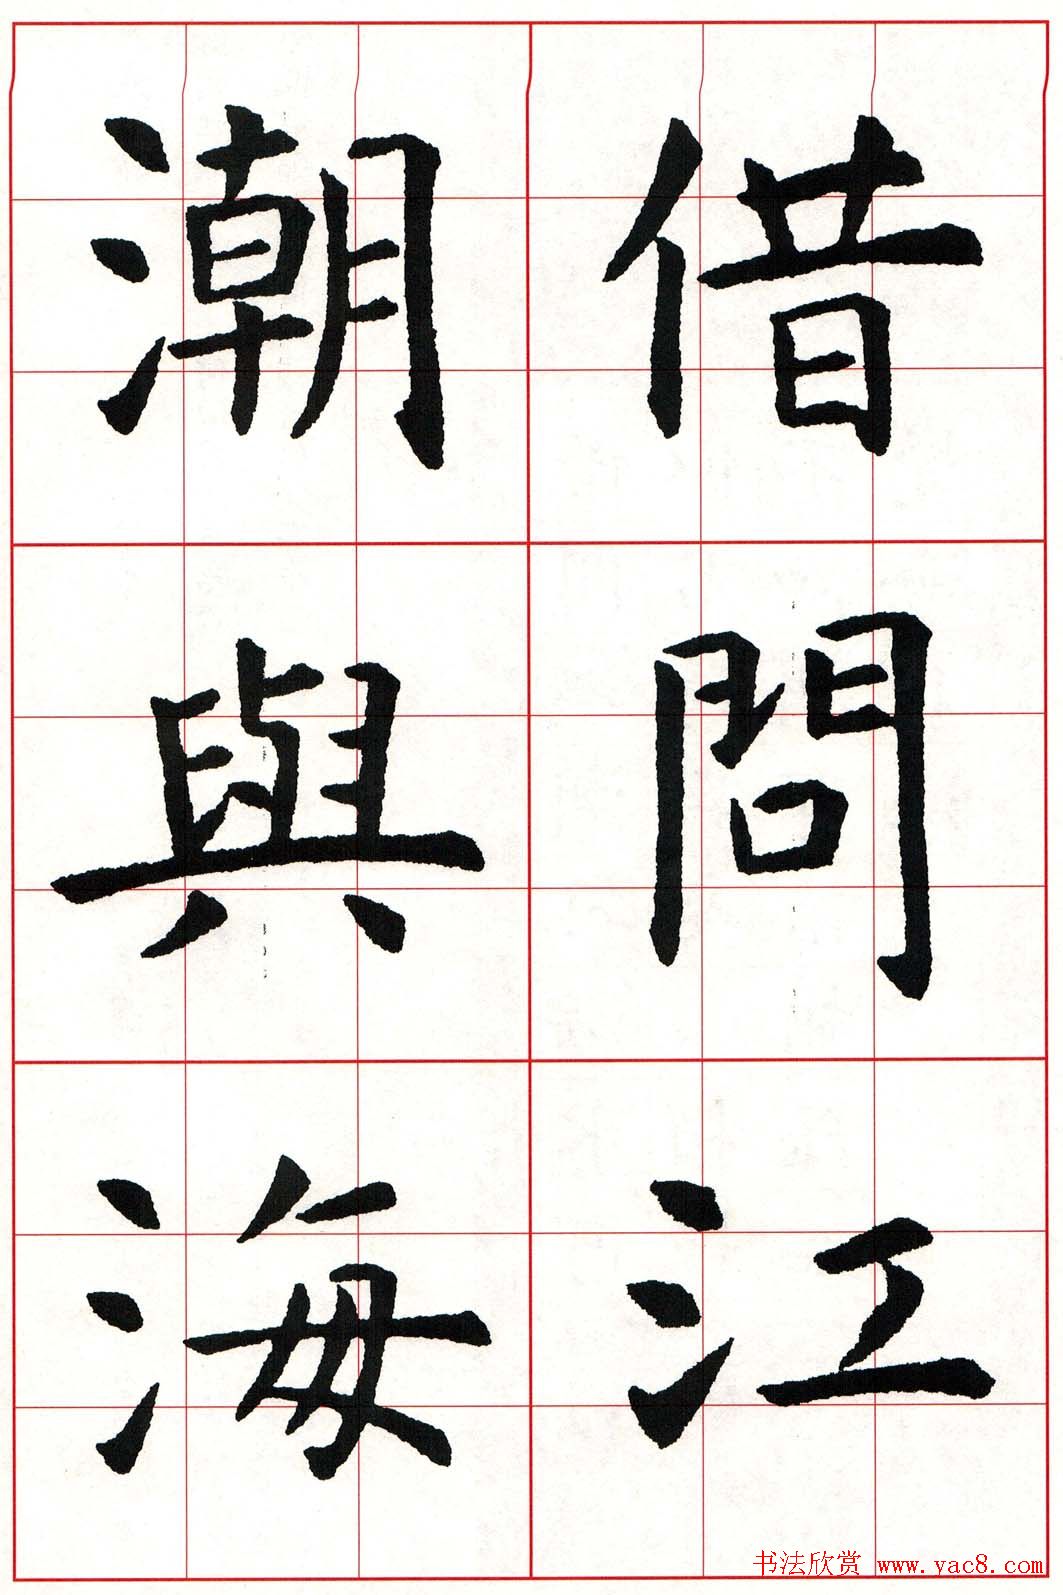 借問江
潮與海
书法欣赏 www.yac8.com